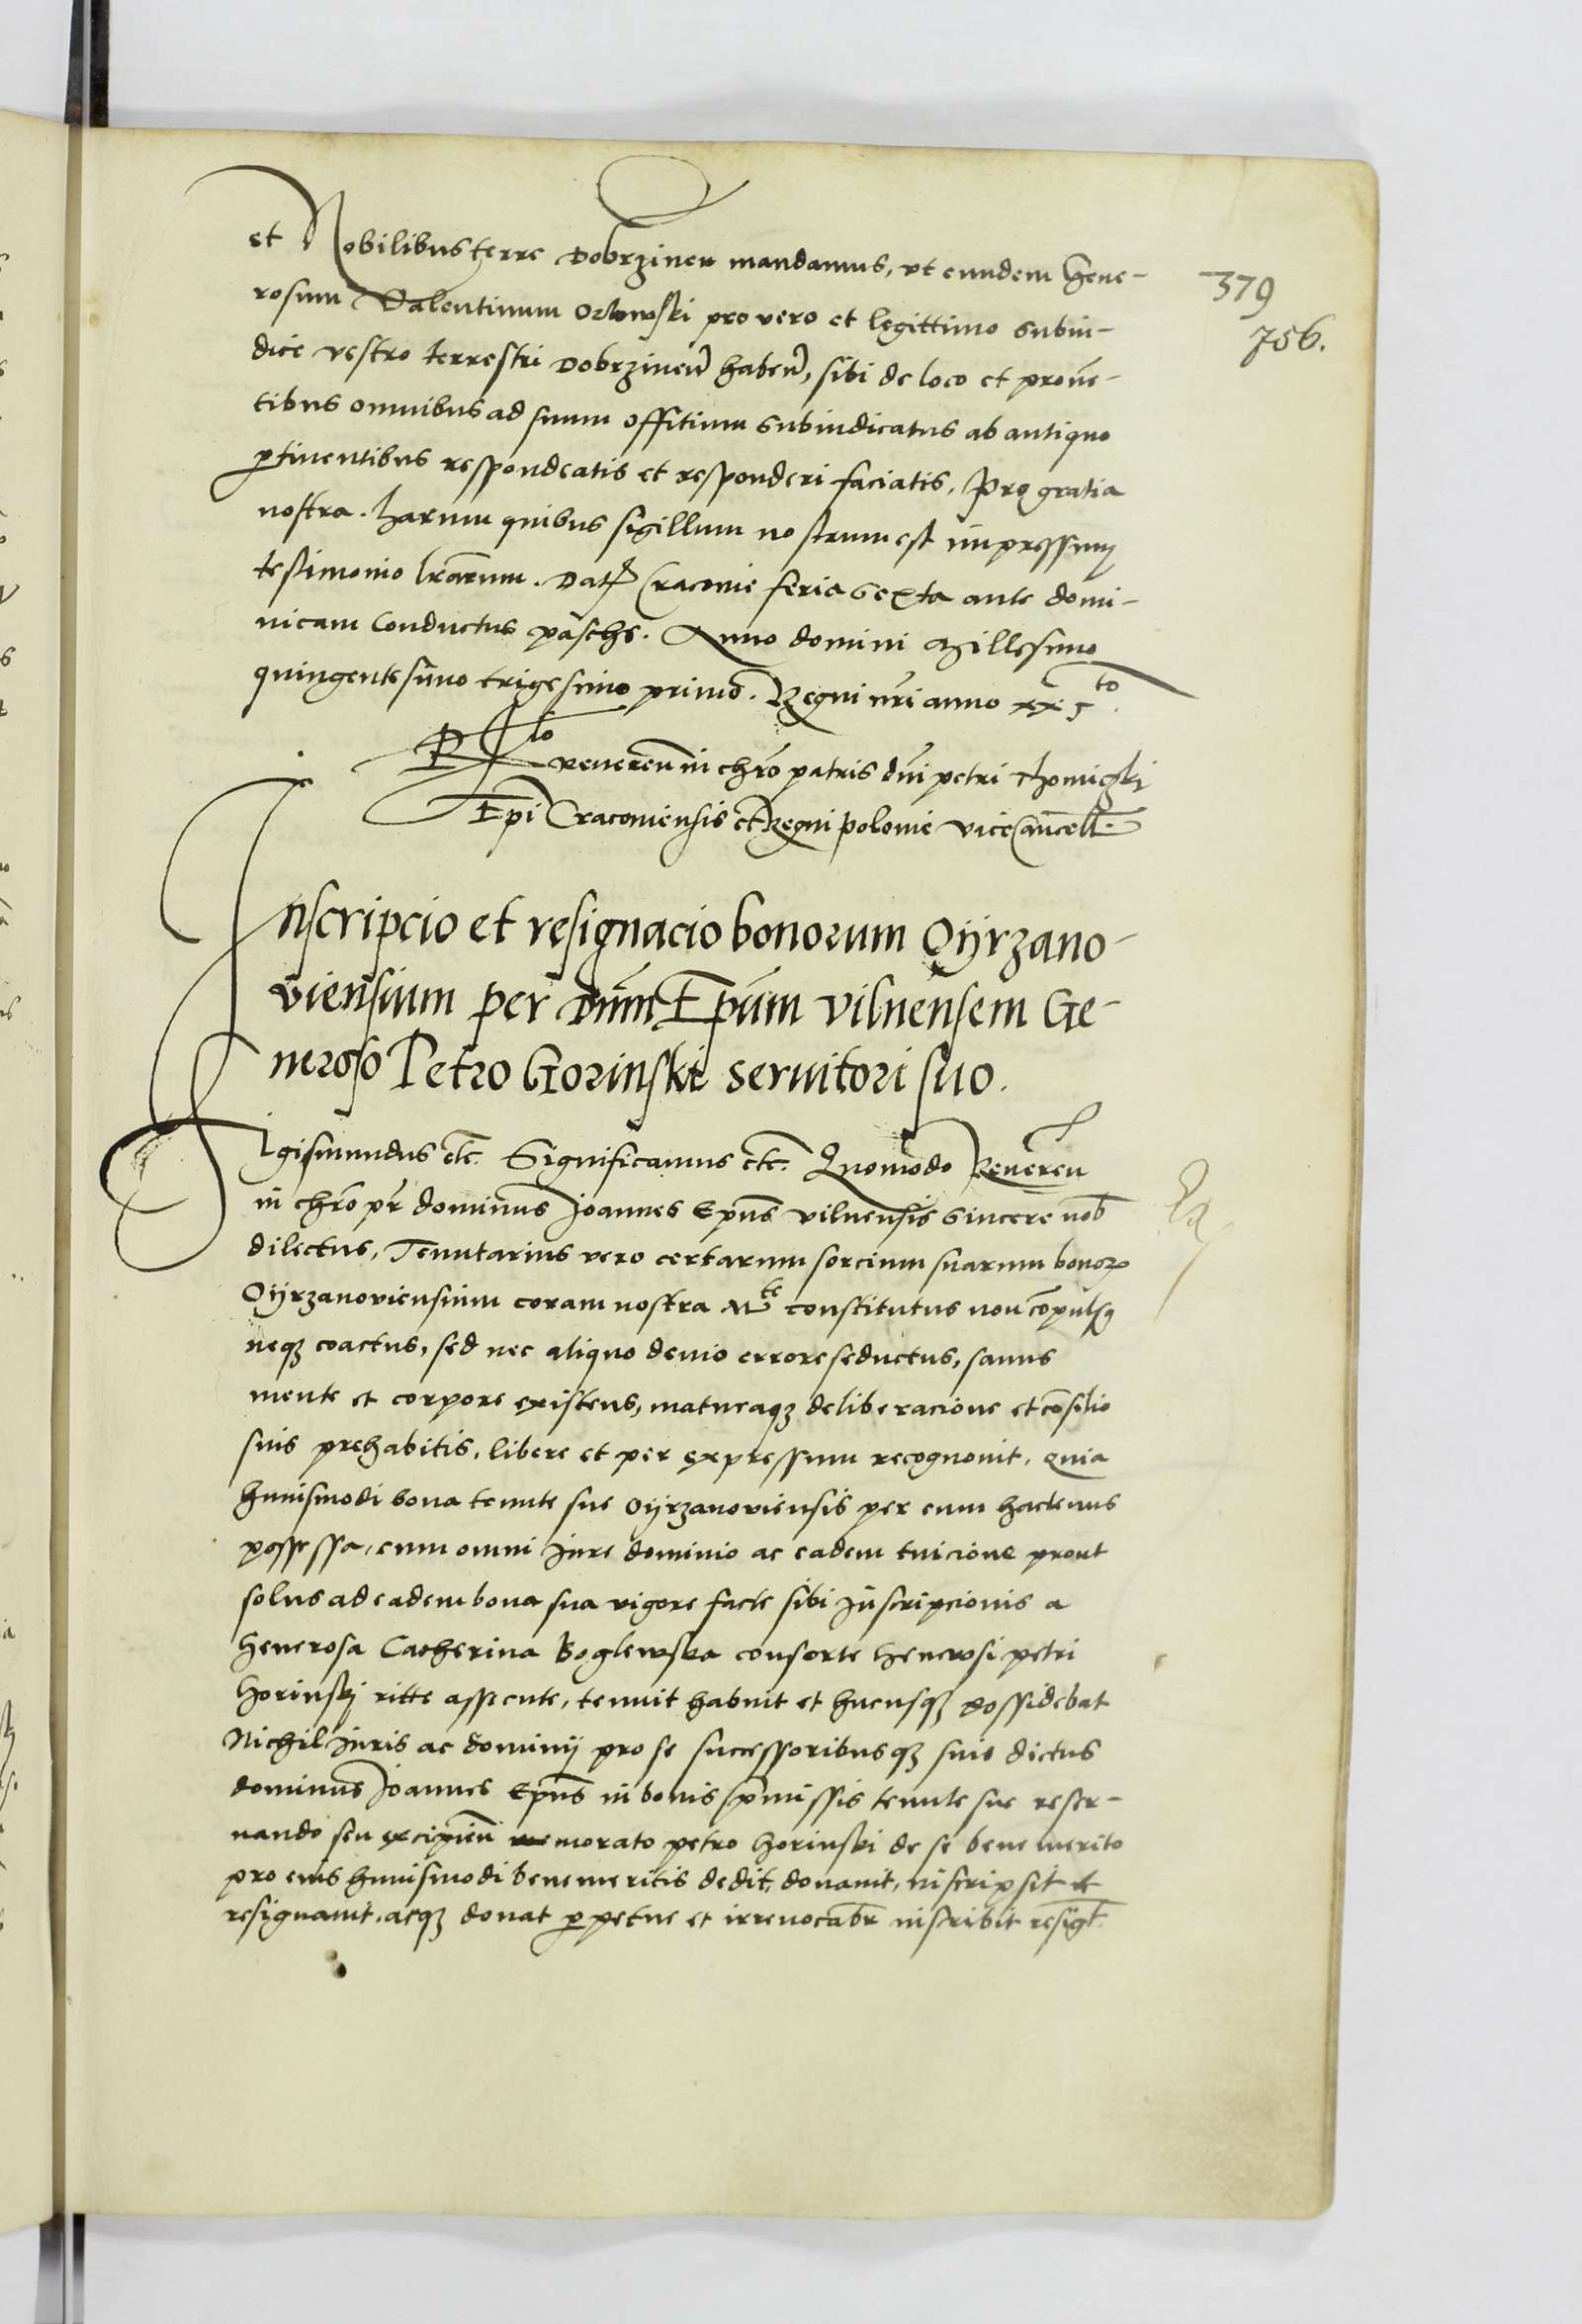 et Nobilibus terre Dobrzinen mandamus, vt eundem Gene-
rosum Valentinum Orlowski pro vero et legittimo subiu-
dice vestro terrestri Dobrzinen haben, sibi de loco et prouē-
tibus omnibus ad suum offitium subiudicatus ab antiquo
ptinentibus respondeatis et responderi faciatis, Pro gratia
nostra. harum quibus sigillum nostrum est impressum
testimonio lrarum. Dat Cracouie feria sexta ante domi-
nicam Conductus pasche. Anno domini Millesimo
quingentesimo trigesimo primo. Regni nri anno xx5to.
Rlo
reueren in chro patris dni petri Thomiczki
Epi Cracouiensis et Regni polonie viceCancell.
Inscripcio et resignacio bonorum Oÿrzano-
viensium per Dnm Epum vilnensem Ge-
neroso Petro Gorinski seruitori suo.
Sigismundus etc. Significamus etc. Quomodo Reueren
in chro pr dominus Joannes Epus vilnensis sincere nob
dilectus, Tenutarius vero certarum sorcium suarum bonor
Oÿrzanoviensium coram nostra Mte constitutus non compulsus
neq coactus, sed nec aliquo deuio errore seductus, sanus
mente et corpore existens, matureaq deliberacione et consilio
suis prehabitis, libere et per expressum recognouit, quia
huiusmodi bona tenute sue oÿrzanoviensis per eum hactenus
possessa, cum omni Jure dominio ac eadem tuicione prout
solus ad eadem bona sua vigore facte sibi inscripcionis a
Generosa Catherina Boglewska consorte Generosi petri
Gorinski ritte assecute, tenuit habuit et hucusq possidebat
Nichil Juris ac dominij pro se successoribusq suis dictus
dominus Joannes Epus in bonis pmissis tenute sue reser-
uando seu excipien memorato petro Gorinski de se bene merito
pro eius huiusmodi benemeritis dedit, donauit, inscripsit et
resignauit, acq donat ppetue et irreuocabr inscribit resigt.
379
756.